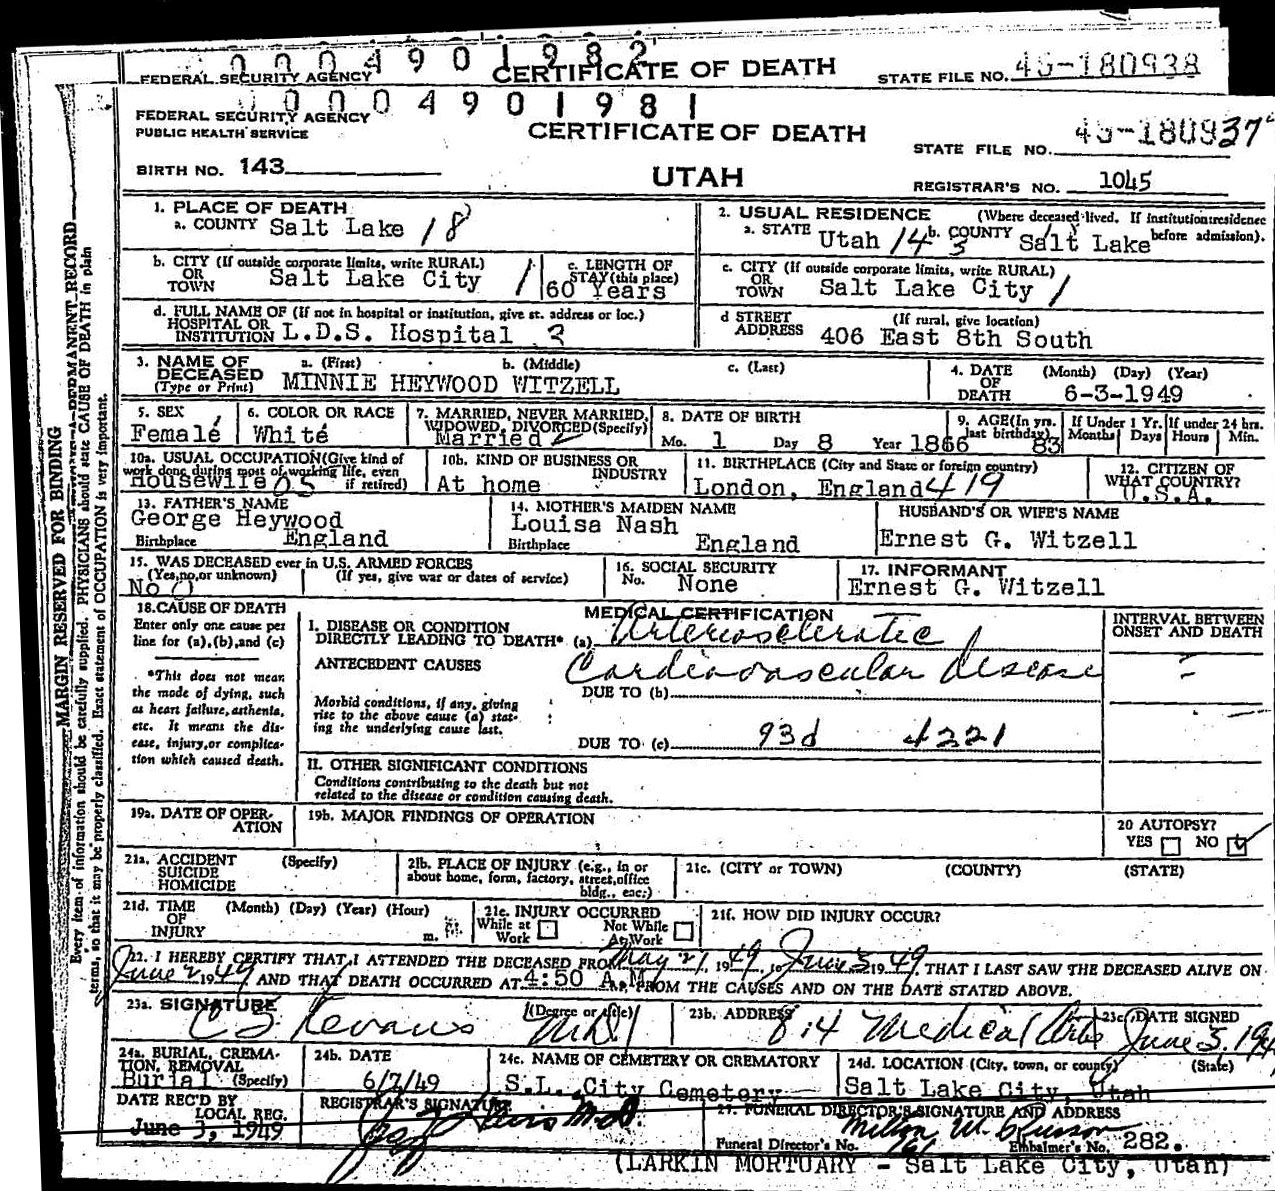 0004901982
FEDERAL SECURITY AGENCY CERTIFICATE OF DEATH STATE FILE NO. 49-180938
0004901981
FEDERAL SECURITY AGENCY
PUBLIC HEALTH SERVICE CERTIFICATE OF DEATH STATE FILE NO. 49-180937
BIRTH NO. 143 UTAH REGISTRAR'S NO. 1045
MARGIN RESERVED FOR BINDING
Every item of information should be carefully supplied. PHYSICIANS should state CAUSE OF DEATH in plain
terms, so that it may be properly classified. Exact statement of OCCUPATION is very important.
1. PLACE OF DEATH
a. COUNTY Salt Lake 18
2. USUAL RESIDENCE (Where deceased lived. If institution: residence before admission).
a. STATE Utah 14 3 b. COUNTY Salt Lake
b. CITY (If outside corporate limits, write RURAL)
OR TOWN Salt Lake City 1
c. LENGTH OF STAY (this place)
60 Years
c. CITY (If outside corporate limits, write RURAL)
OR TOWN Salt Lake City 1
d. FULL NAME OF (If not in hospital or institution, give st. address or loc.)
HOSPITAL OR INSTITUTION L.D.S. Hospital 3
d STREET ADDRESS (If rural, give location)
406 East 8th South
3. NAME OF DECEASED (Type or Print) a. (First) b. (Middle) c. (Last)
MINNIE HEYWOOD WITZELL
4. DATE OF DEATH (Month) (Day) (Year)
6-3-1949
5. SEX
Female
6. COLOR OR RACE
White
7. MARRIED, NEVER MARRIED, WIDOWED, DIVORCED (Specify)
Married 2
8. DATE OF BIRTH
Mo. 1 Day 8 Year 1866
9. AGE (In yrs. last birthday) 83
If Under 1 Yr. Months Days
If under 24 hrs. Hours Min.
10a. USUAL OCCUPATION (Give kind of work done during most of working life, even if retired)
Housewife 05
10b. KIND OF BUSINESS OR INDUSTRY
At home
11. BIRTHPLACE (City and State or foreign country)
London, England 419
12. CITIZEN OF WHAT COUNTRY?
U.S.A.
13. FATHER'S NAME
George Heywood
Birthplace England
14. MOTHER'S MAIDEN NAME
Louisa Nash
Birthplace England
HUSBAND'S OR WIFE'S NAME
Ernest G. Witzell
15. WAS DECEASED ever in U.S. ARMED FORCES
(Yes, no, or unknown) (If yes, give war or dates of service)
No 0
16. SOCIAL SECURITY
No. None
17. INFORMANT
Ernest G. Witzell
18. CAUSE OF DEATH
Enter only one cause per line for (a), (b), and (c)
*This does not mean the mode of dying, such as heart failure, asthenia, etc. It means the disease, injury, or complication which caused death.
MEDICAL CERTIFICATION
I. DISEASE OR CONDITION
DIRECTLY LEADING TO DEATH* (a) Arteriosclerotic
Cardiovascular disease
ANTECEDENT CAUSES
DUE TO (b)
Morbid conditions, if any, giving rise to the above cause (a) stating the underlying cause last.
DUE TO (c) 93d 4221
INTERVAL BETWEEN ONSET AND DEATH
II. OTHER SIGNIFICANT CONDITIONS
Conditions contributing to the death but not
related to the disease or condition causing death.
19a. DATE OF OPERATION
19b. MAJOR FINDINGS OF OPERATION
20 AUTOPSY?
YES NO
21a. ACCIDENT (Specify)
SUICIDE
HOMICIDE
21b. PLACE OF INJURY (e.g., in or about home, form, factory, street, office bldg., eac;)
21c. (CITY or TOWN) (COUNTY) (STATE)
21d. TIME OF INJURY (Month) (Day) (Year) (Hour) m.
21e. INJURY OCCURRED
While at Work Not While At Work
21f. HOW DID INJURY OCCUR?
22. I HEREBY CERTIFY THAT I ATTENDED THE DECEASED FROM May 21, 1949, to June 3 1949, THAT I LAST SAW THE DECEASED ALIVE ON
June 2 1949 AND THAT DEATH OCCURRED AT 4:50 A.M., FROM THE CAUSES AND ON THE DATE STATED ABOVE.
23a. SIGNATURE (Degree or title) 23b. ADDRESS 23c. DATE SIGNED
M.D. 814 Medical Arts June 3, 194
24a. BURIAL, CREMATION, REMOVAL (Specify)
Burial
24b. DATE
6/7/49
24c. NAME OF CEMETERY OR CREMATORY
S.L. City Cemetery
24d. LOCATION (City, town, or county) (State)
Salt Lake City, Utah
DATE REC'D BY LOCAL REG.
June 3, 1949
REGISTRAR'S SIGNATURE
M.D.
FUNERAL DIRECTOR'S SIGNATURE AND ADDRESS
Funeral Director's No. Embalmer's No. 282.
(LARKIN MORTUARY - Salt Lake City, Utah)